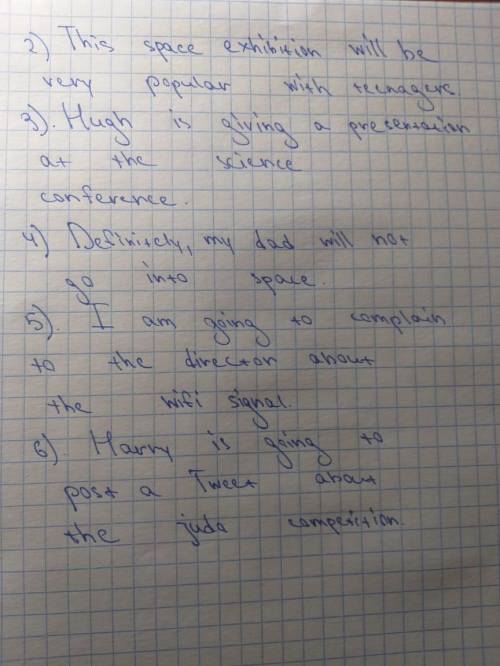 2) This space exhibition will be
very popular with teenagers
3). Hugh is giving a presentation
at the science
conference.
4) Definitely, my dad will not
go into space.
5). I am going to complain
to the director about
the wifi signal.
6) Harry is going to
post a Tweet about
the judo competition.